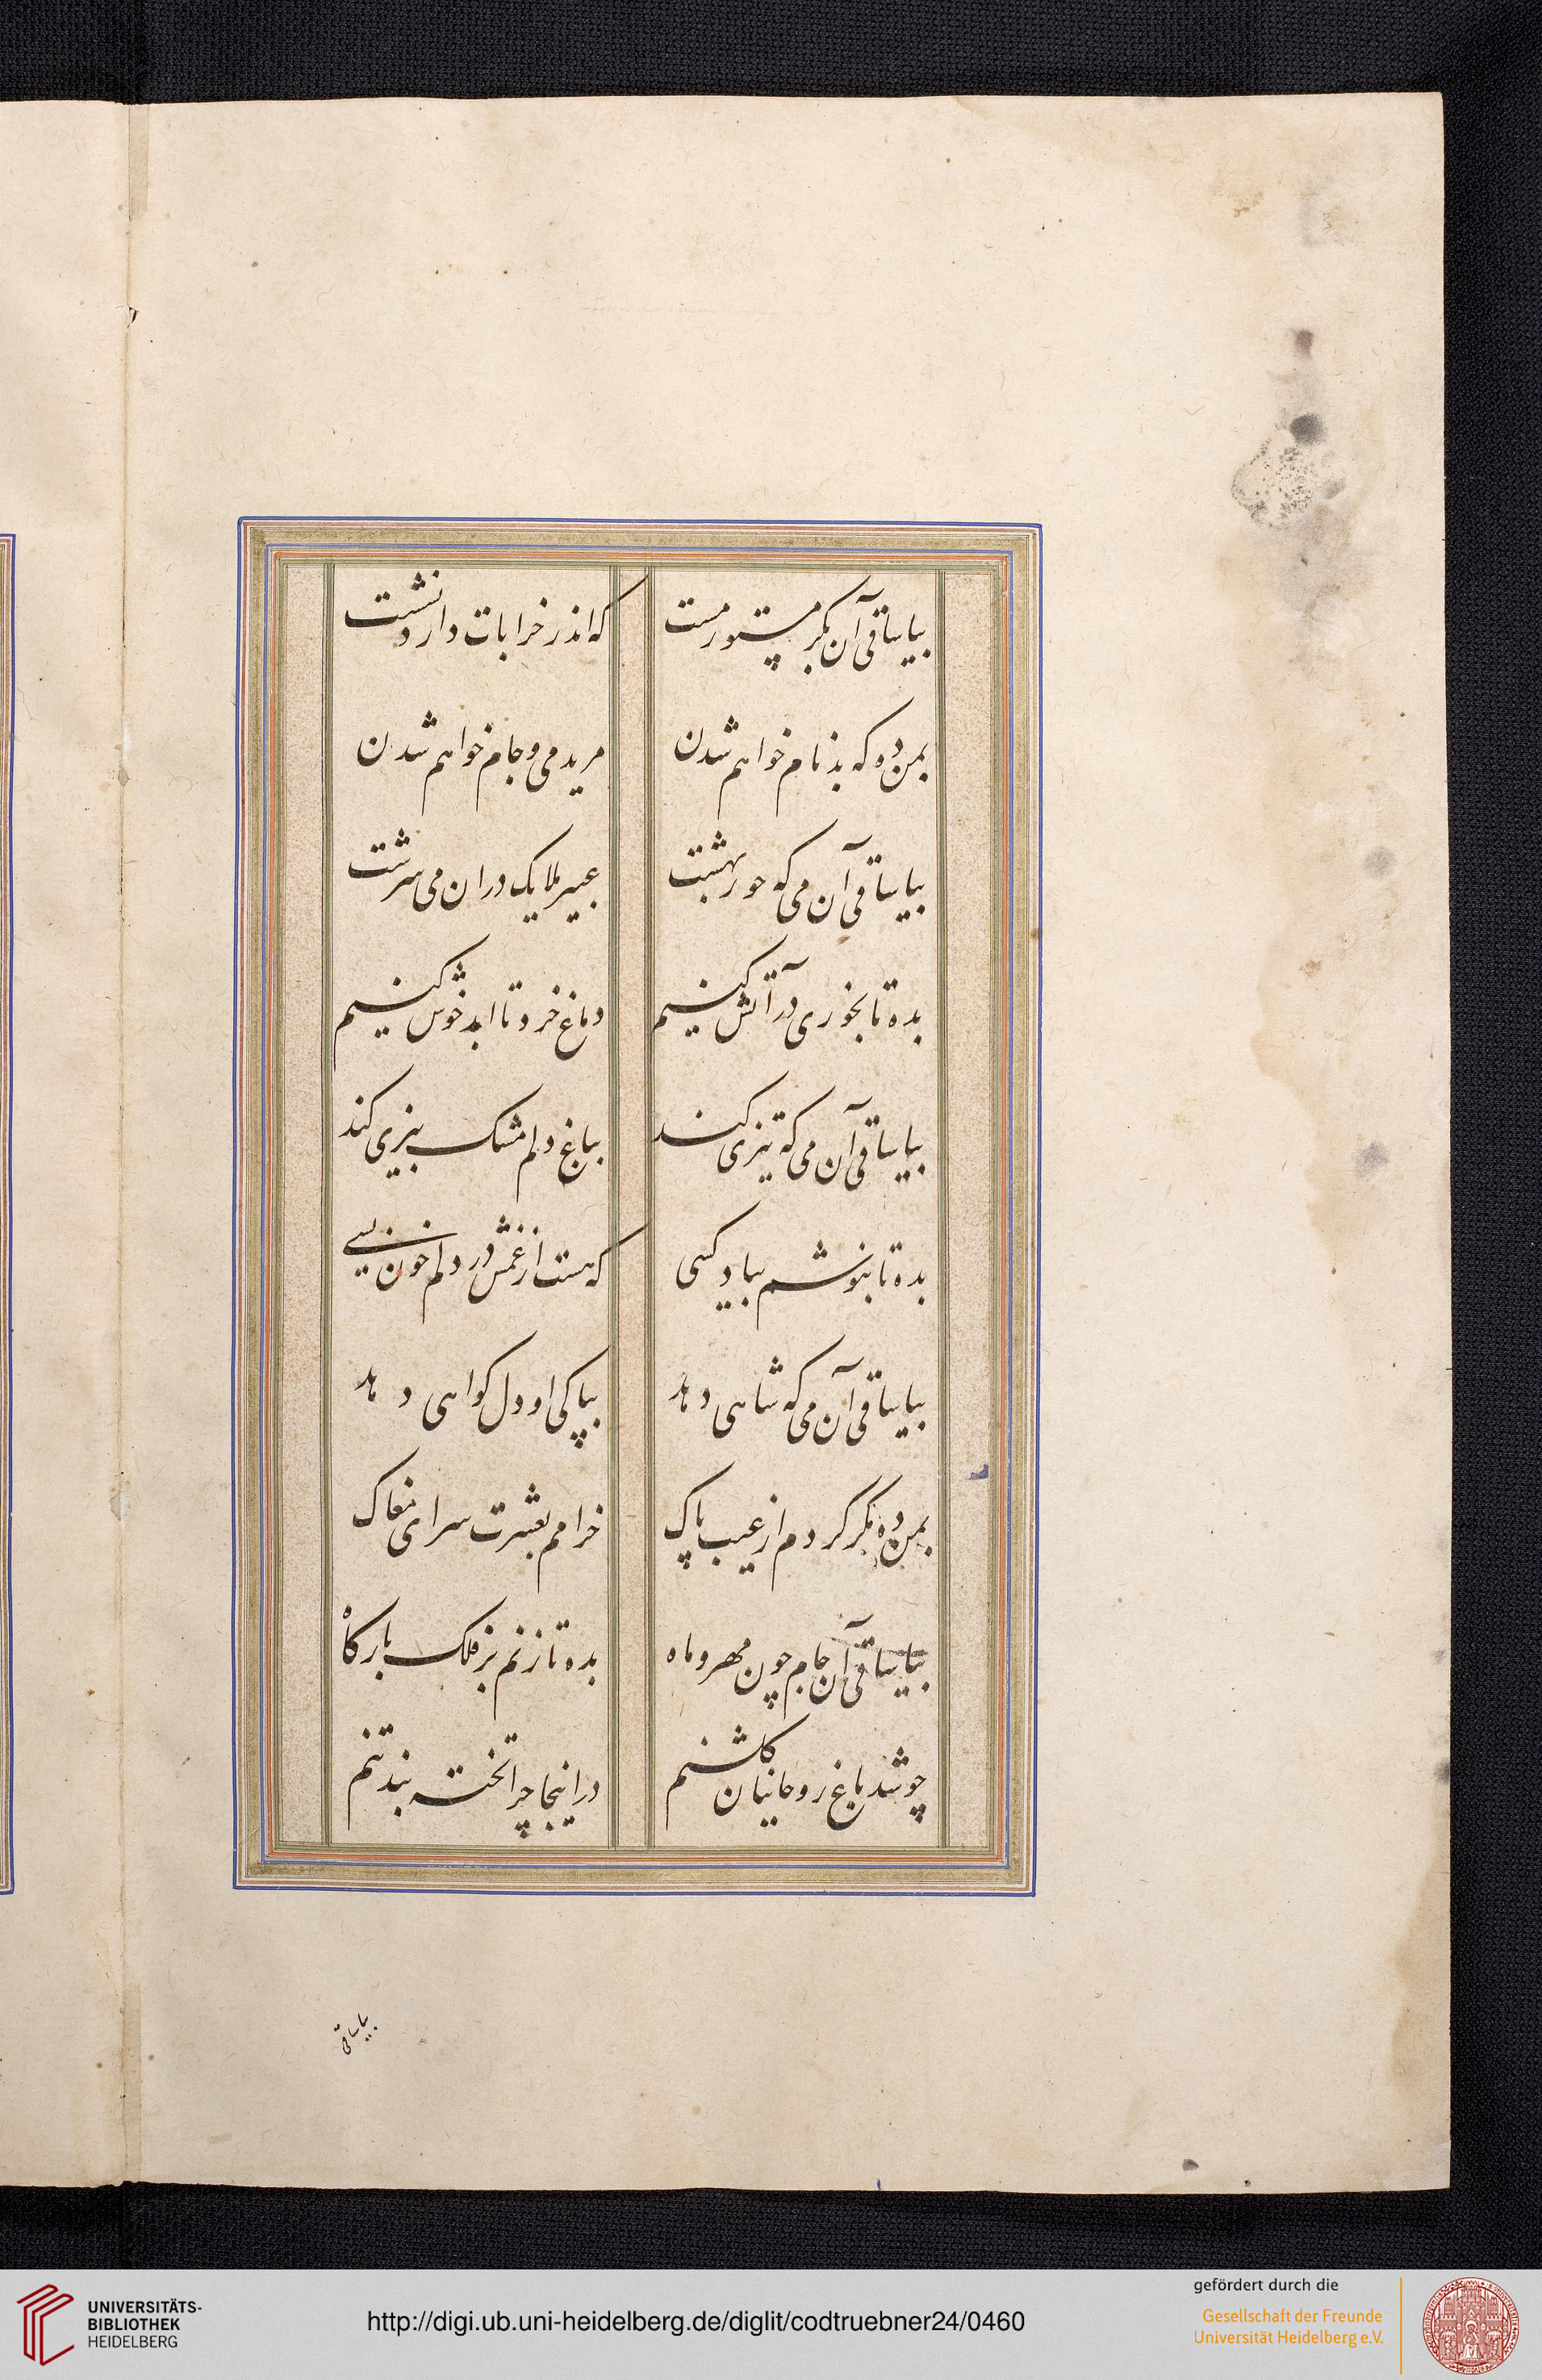 بیا ساقی آن بکر مستور مست
که اندر خرابات دارد نشست
بمن ده که بذنام خواهم شدن
مرید می و جام خواهم شدن
بیا ساقی آن می که حور بهشت
عبیر ملایک در ان می سرشت
بده تا بخوری در آتش کنیم
دماغ خرد تا ابد خوش کنیم
بیا ساقی آن می که تیزی کند
بباغ دلم مشک بیزی کند
بده تا بنوشم بیاد کسی
که هست از غمش در دلم خون بسی
بیا ساقی آن می که شاهی دهد
بپاکی او دل کواهی دهد
بمن ده مکر کردم از عیب پاک
خرامم بعشرت سرای مغاک
بیا ساقی آن جام چون مهر و ماه
بده تا زنم بر فلک بارکاه
چو شد باغ روحانیان کلشنم
در اینجا چرا تخته بند تنم
بیا ساقی
UNIVERSITÄTS-
BIBLIOTHEK
HEIDELBERG
http://digi.ub.uni-heidelberg.de/diglit/codtruebner24/0460
gefördert durch die
Gesellschaft der Freunde
Universität Heidelberg e.V.